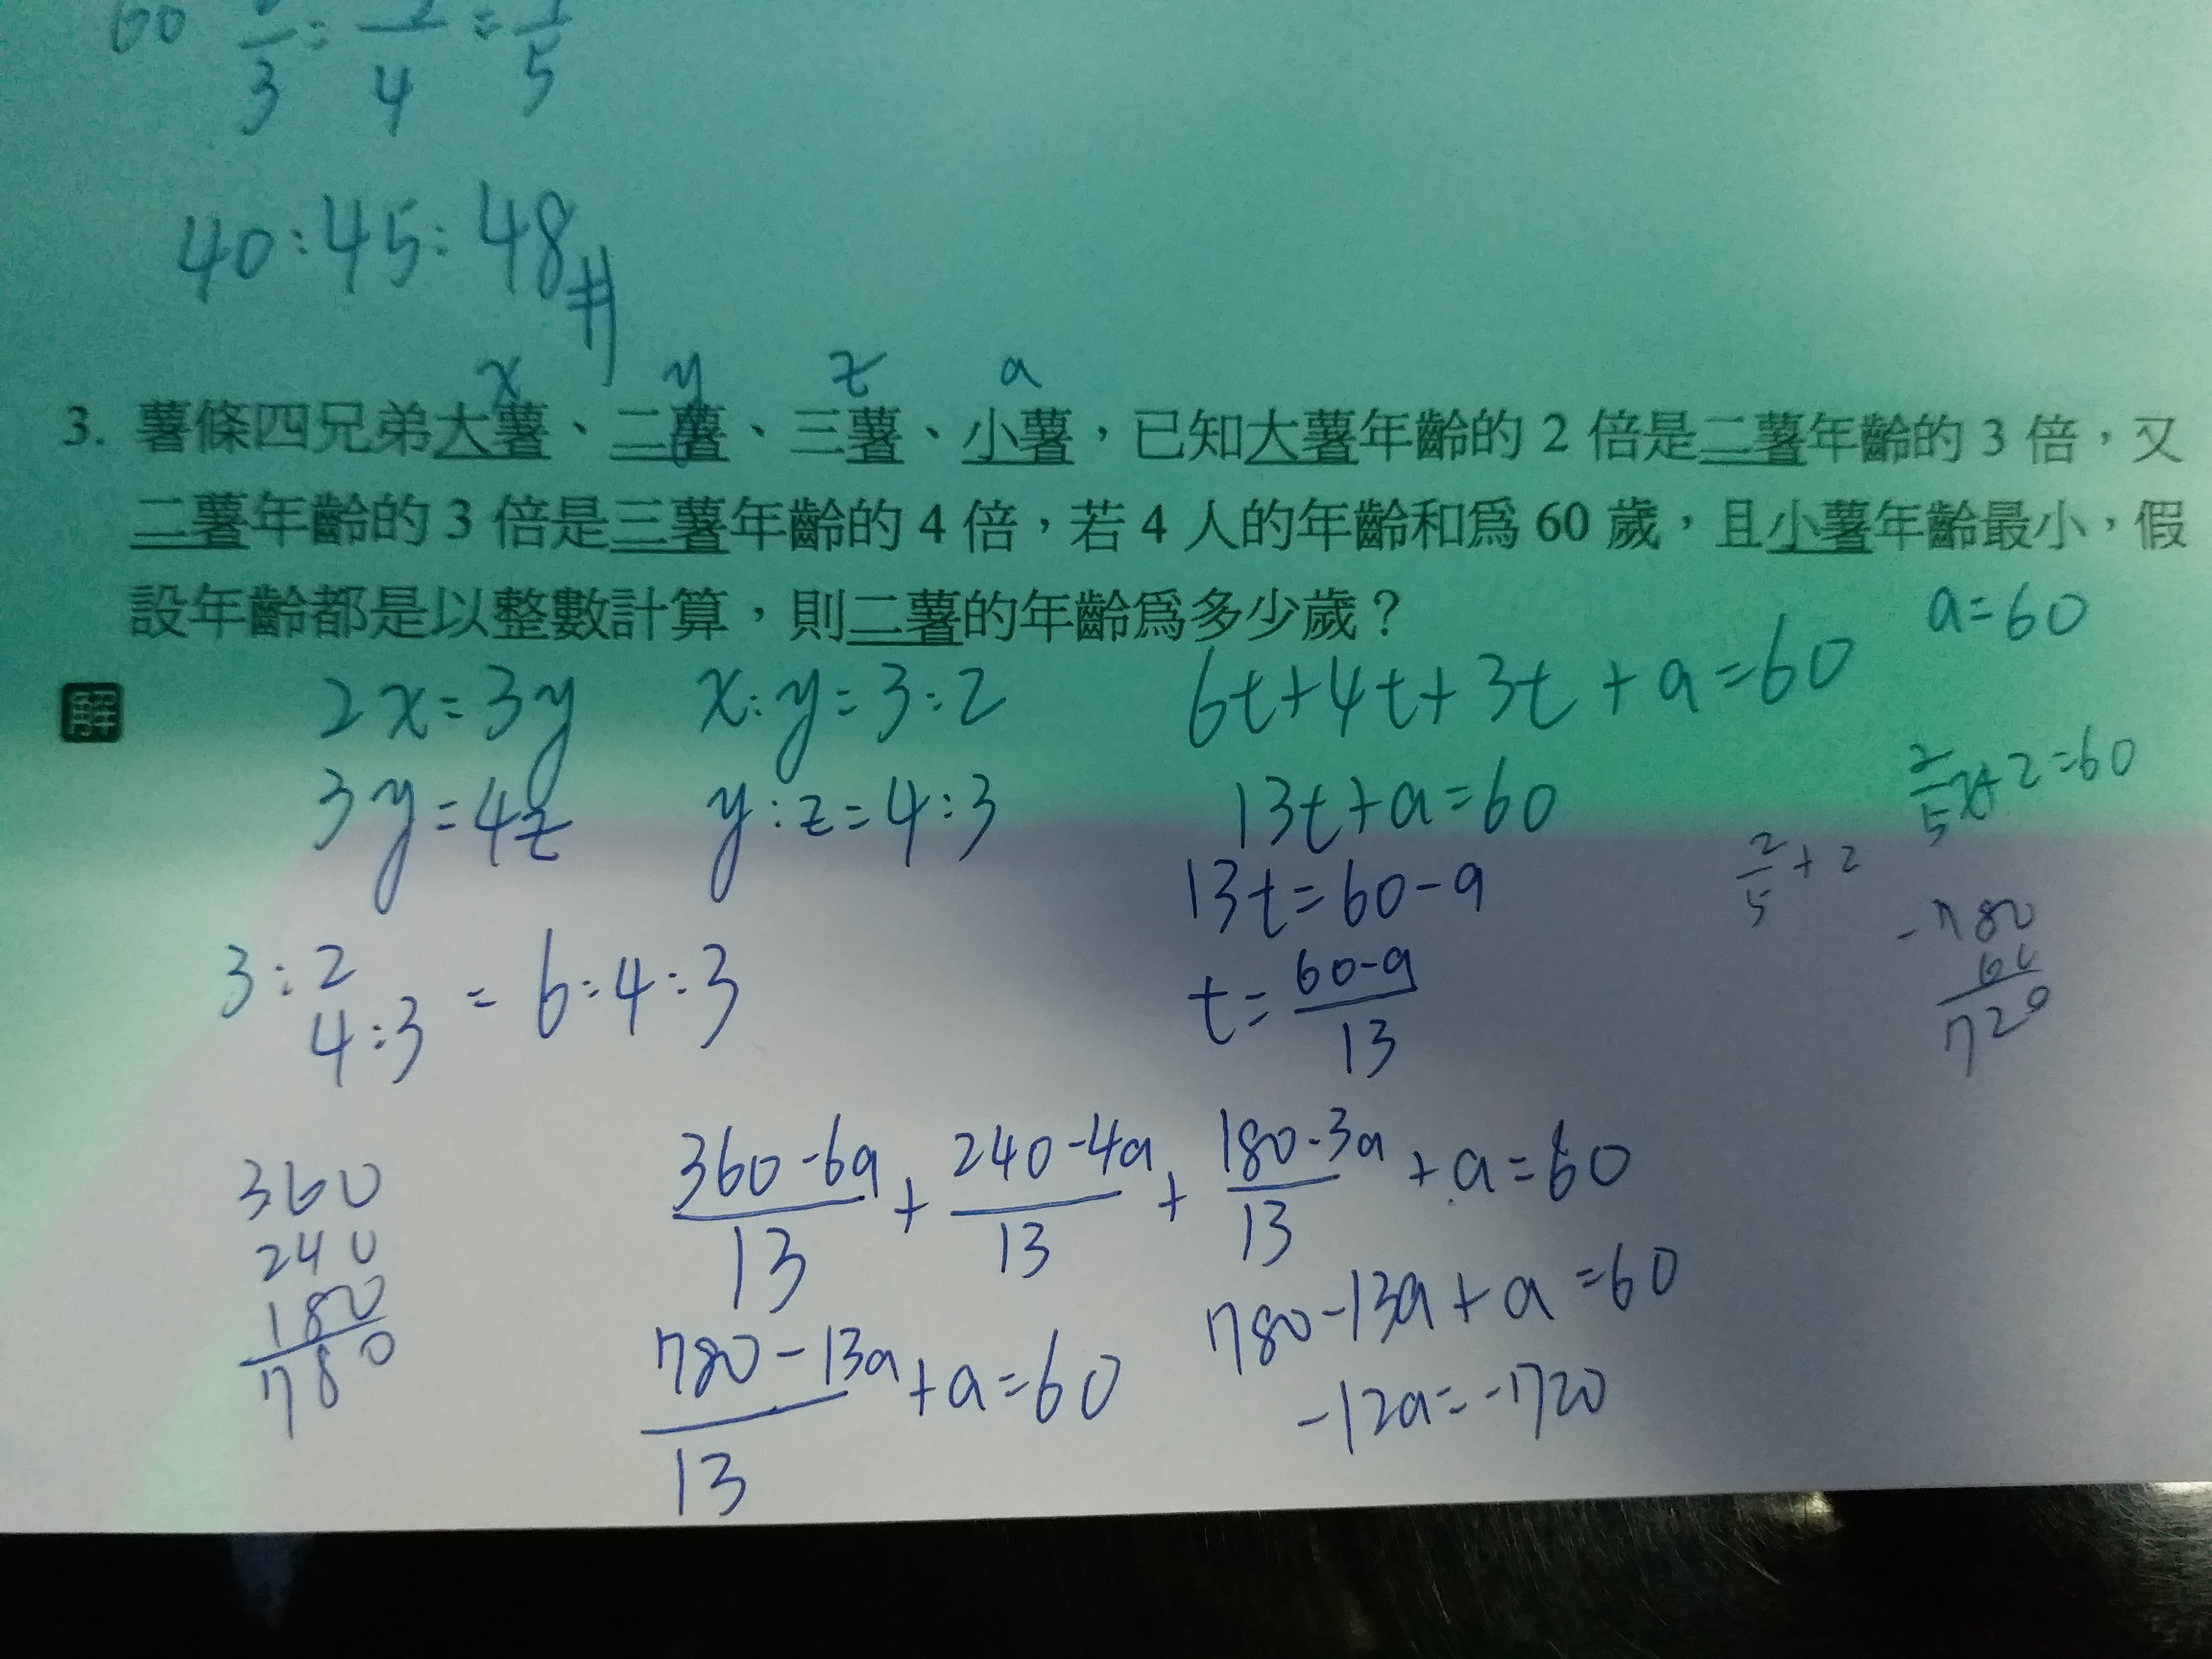 60 3 : 4 = 5
40:45:48#
x y z a
3. 薯條四兄弟大薯、二薯、三薯、小薯，已知大薯年齡的 2 倍是二薯年齡的 3 倍，又
二薯年齡的 3 倍是三薯年齡的 4 倍，若 4 人的年齡和為 60 歲，且小薯年齡最小，假
設年齡都是以整數計算，則二薯的年齡為多少歲？
a=60
解
2x=3y x:y=3:2 6t+4t+3t+a=60
3y=4z y:z=4:3 13t+a=60
2/5 x+2=60
2/5+2
13t=60-a
3:2
4:3 = 6:4:3
t=60-a/13
-780
60
720
360
240
180
780
360-6a/13 + 240-4a/13 + 180-3a/13 + a=60
780-13a/13 + a=60
780-13a+a=60
-12a=-720